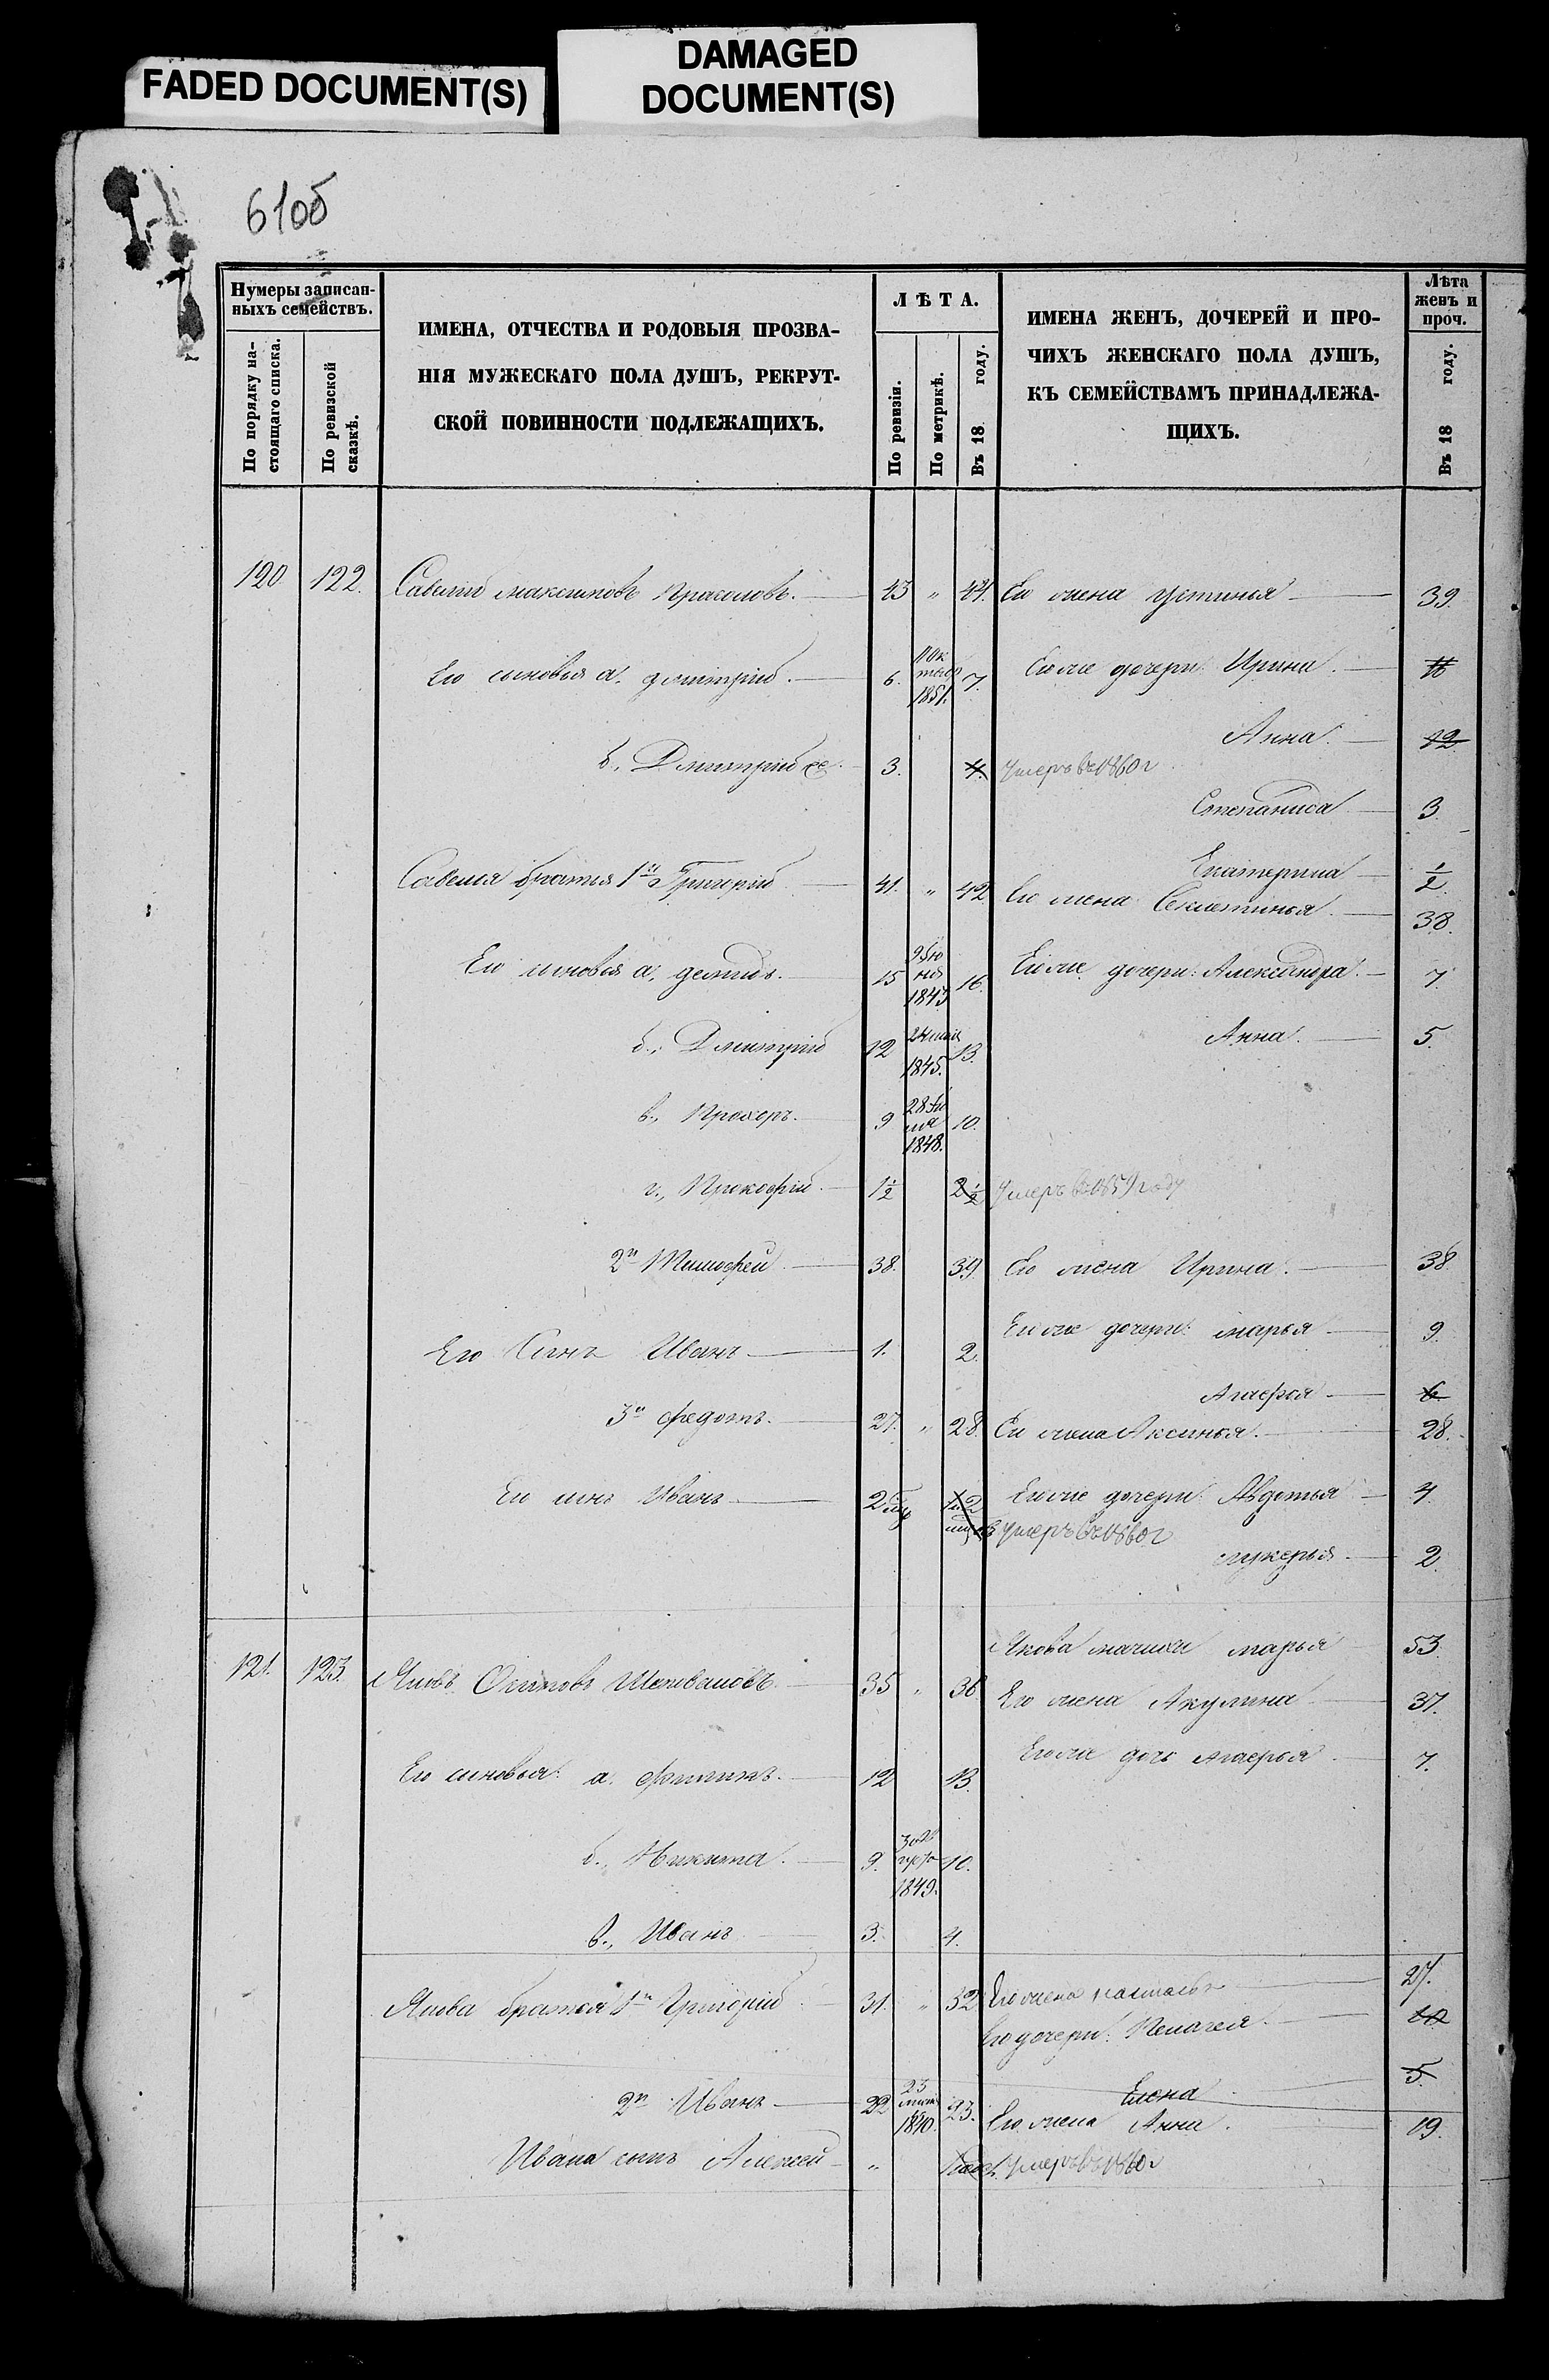 FADED DOCUMENT(S)
DAMAGED
DOCUMENT(S)
610б
Нумеры записан-
ныхъ семействъ.
По порядку на-
стоящаго списка.
По ревизской
сказкѣ.
ИМЕНА, ОТЧЕСТВА И РОДОВЫЯ ПРОЗВА-
НІЯ МУЖЕСКАГО ПОЛА ДУШЪ, РЕКРУТ-
СКОЙ ПОВИННОСТИ ПОДЛЕЖАЩИХЪ.
ЛѢТА.
По ревизіи.
По метрикѣ.
Въ 18 году.
ИМЕНА ЖЕНЪ, ДОЧЕРЕЙ И ПРО-
ЧИХЪ ЖЕНСКАГО ПОЛА ДУШЪ,
КЪ СЕМЕЙСТВАМЪ ПРИНАДЛЕЖА-
ЩИХЪ.
Лѣта
женъ и
проч.
Въ 18 году.
120 122. Савелій Максимовъ Прасоловъ. 43 " 44. Его жена Устинья 39.
Его сыновья а. Дмитрій. 6. 1851. 7. Егоже дочери: Ирина. 16
Анна. 12
б., Дмитрій 3. 4. умеръ въ 1860 г
Степанида 3.
Екатерина 1/2.
Савелья братья 1й Григорій 41. " 42 Его жена Секлетинья. 38.
Его сыновья а, Демидъ. 15 1843 16. Егоже дочери: Александра. 7.
б., Дмитрій 12 24 мая 1845. 13. Анна. 5.
в., Прохоръ. 9 28 1848. 10.
г., Прокофій. 1 1/2 2 1/2 умеръ въ 1859 году
2й Тимофей 38. 39. Его жена Ирина. 38.
Егоже дочери: Марья 9.
Его Сынъ Иванъ 1. 2.
Агафья 6.
3й Федотъ. 27. " 28. Его жена Аксинья. 28.
Его сынъ Иванъ 2 Егоже дочери: Авдотья 4.
умеръ въ 1860 г
Лукерья. 2.
Якова мачиха Марья 53.
121. 123. Яковъ Осиповъ 35 " 36 Его жена Акулина 37.
Егоже дочь Агафья 7.
Его сыновья: а. Филипъ. 12 13.
б., Никита. 9. 1849. 10.
в., Иванъ 3. 4.
Якова братья 1й Григорій 31. " 32 Его жена Наталья 27.
Его дочери: Пелагея. 10
Елена 5.
2й Иванъ 22 23 1840. 23. Его жена Анна. 19.
Ивана сынъ Алексей " умеръ въ 1860 г